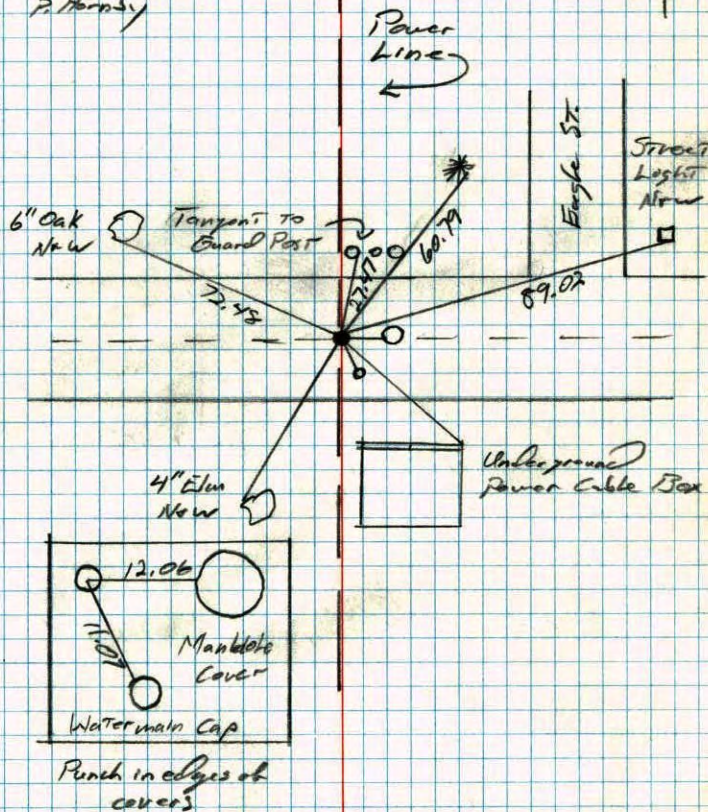 P. Hornsy
Power
Line
Eagle ST.
Street
Light
New
6" Oak
New
Tangent to
Guard Post
60.79
27.47
72.48
89.02
4" Elm
New
Underground
Power Cable Box
12.06
11.07
Manhole
Cover
Watermain Cap
Punch in edges of
covers